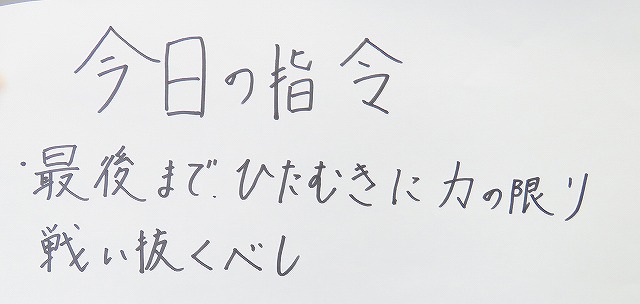 今日の指令
・最後まで、ひたむきに力の限り
戦い抜くべし